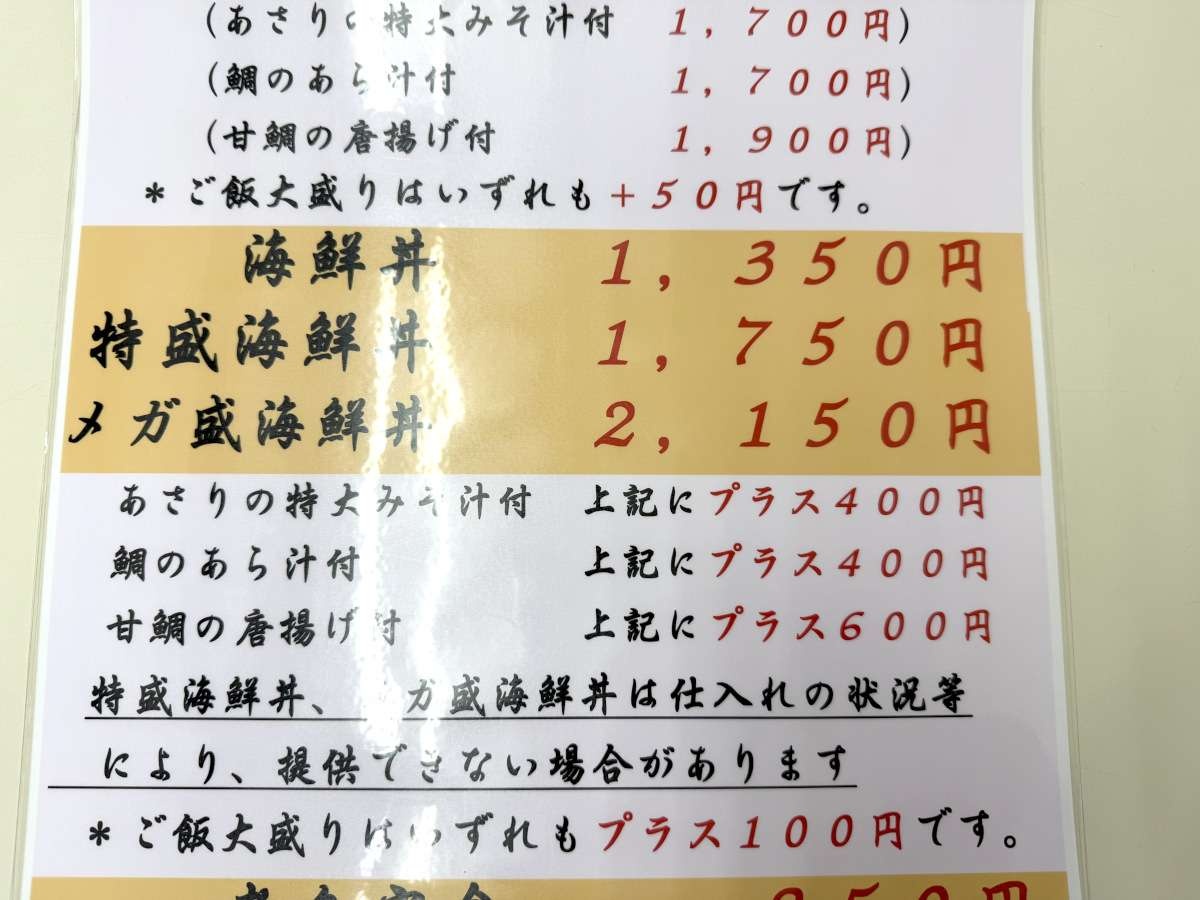 (あさりの特大みそ汁付 1,700円)
(鯛のあら汁付 1,700円)
(甘鯛の唐揚げ付 1,900円)
*ご飯大盛りはいずれも+50円です。
海鮮丼 1,350円
特盛海鮮丼 1,750円
メガ盛海鮮丼 2,150円
あさりの特大みそ汁付 上記にプラス400円
鯛のあら汁付 上記にプラス400円
甘鯛の唐揚げ付 上記にプラス600円
特盛海鮮丼、 ガ盛海鮮丼は仕入れの状況等
により、提供できない場合があります
*ご飯大盛りはいずれもプラス100円です。